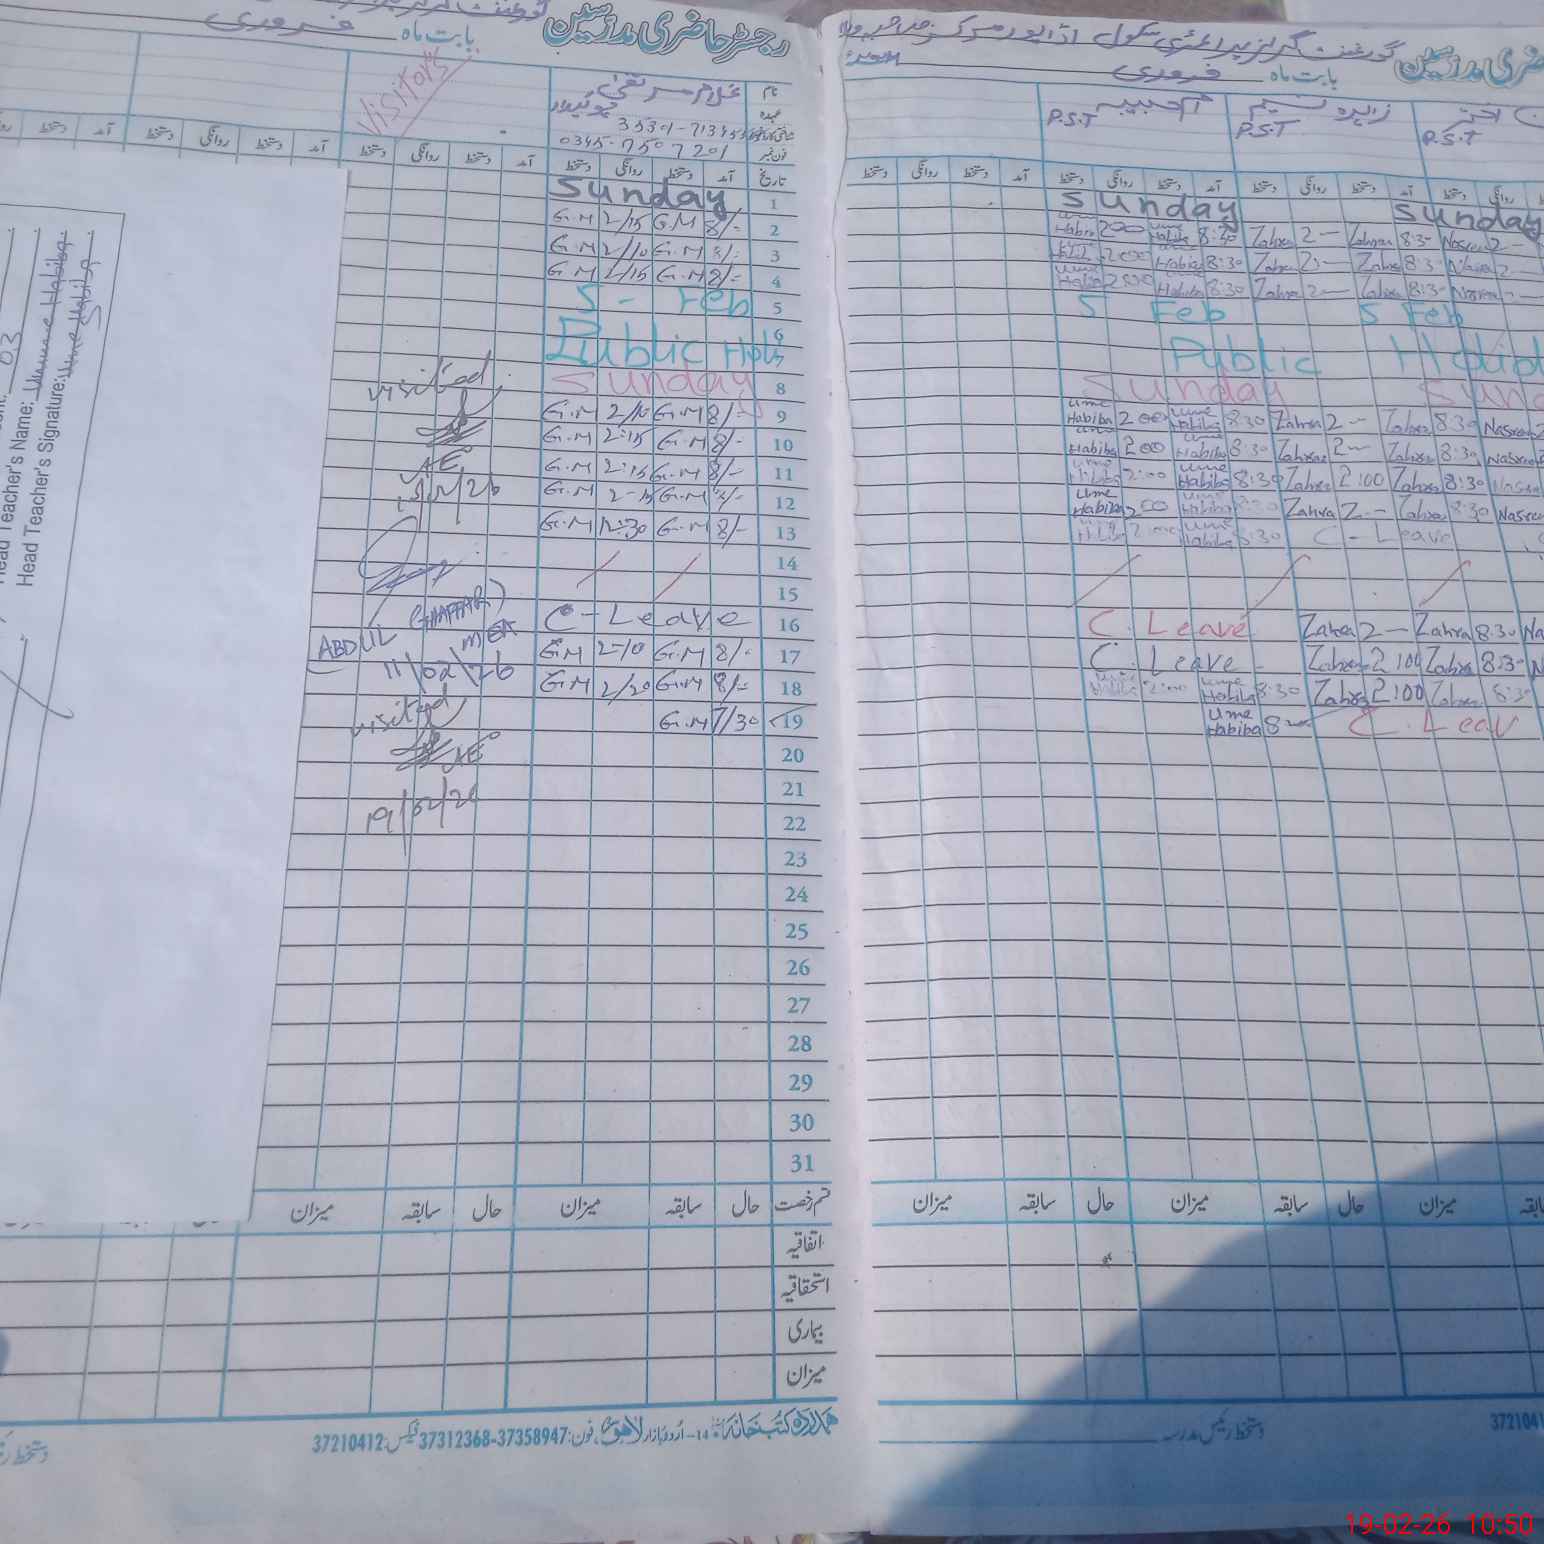 رجسٹر حاضری مدرسین
بابت ماہ فروری
Visitors
نام غلام مرتضیٰ
عہدہ چوکیدار
فون نمبر 0345-7507201
تاریخ آمد دستخط روانگی دستخط آمد دستخط روانگی دستخط آمد دستخط روانگی دستخط
1 Sunday
2 G.M 2/15 G.M 8/-
3 G.M 2/10 G.M 8/-
4 G.M 2/15 G.M 8/-
5 5 - Feb
6
7 Public
8 Sunday
9 G.M 2/10 G.M 8/-
10 G.M 2:15 G.M 8/-
11 G.M 2:15 G.M 8/-
12 G.M 2-15 G.M 8/-
13 G.M 12:30 G.M 8/-
14
15
16 C-Leave
17 G.M 2=10 G.M 8/-
18 G.M 2/20 G.M 8/-
19 G.M 7/30
20
21
22
23
24
25
26
27
28
29
30
31
visited
AEO
ABDUL GHAFFAR
MEA
11/02/26
visited
AEO
19/02/26
Head Teacher's Name: Umme Habiba
Head Teacher's Signature: Ume Habiba
03
قسم رخصت حال سابقہ میزان حال سابقہ میزان
اتفاقیہ
استحقاقیہ
بیماری
میزان
ہمدرد کتب خانہ 14-اردو بازار لاہور، فون: 37358947-37312368 فیکس: 37210412
حاضری مدرسین
گورنمنٹ گرلز پرائمری سکول
بابت ماہ فروری
ام حبیبہ زاہرہ نسیم اختر
P.S.T P.S.T P.S.T
آمد دستخط روانگی دستخط آمد دستخط روانگی دستخط آمد دستخط روانگی دستخط
Sunday Sunday
Habiba 200 Ume Habiba 8:30 Zahra 2- Zahra 8:3- Nasreen 2-
2:00 Habiba 8:30 Zahra 2- Zahra 8:3-
Ume Habiba 200 Habiba 8:30 Zahra 2- Zahra 8:3- Nasreen 2-
5 Feb 5 Feb
Public Holid
Sunday Sund
Ume Habiba 200 Ume Habiba 8:30 Zahra 2- Zahra 8:30 Nasreen
Ume Habiba 200 Ume Habiba 8:30 Zahra 2- Zahra 8:30 Nasreen
Ume Habiba 2:00 Ume Habiba 8:30 Zahra 2:00 Zahra 8:30 Nasreen
Ume Habiba 200 Ume Habiba 8:30 Zahra 2-- Zahra 8:30 Nasreen
2:00 Ume Habiba 8:30 C-Leave
C. Leave Zahra 2- Zahra 8:30 Na
C. Leave - Zahra 2:00 Zahra 8:30 N
Ume Habiba 2:00 Ume Habiba 8:30 Zahra 2:00 Zahra 8:30
Ume Habiba 8- C. Leav
میزان سابقہ حال میزان سابقہ حال میزان
دستخط رئیس مدرسہ
19-02-26 10:50